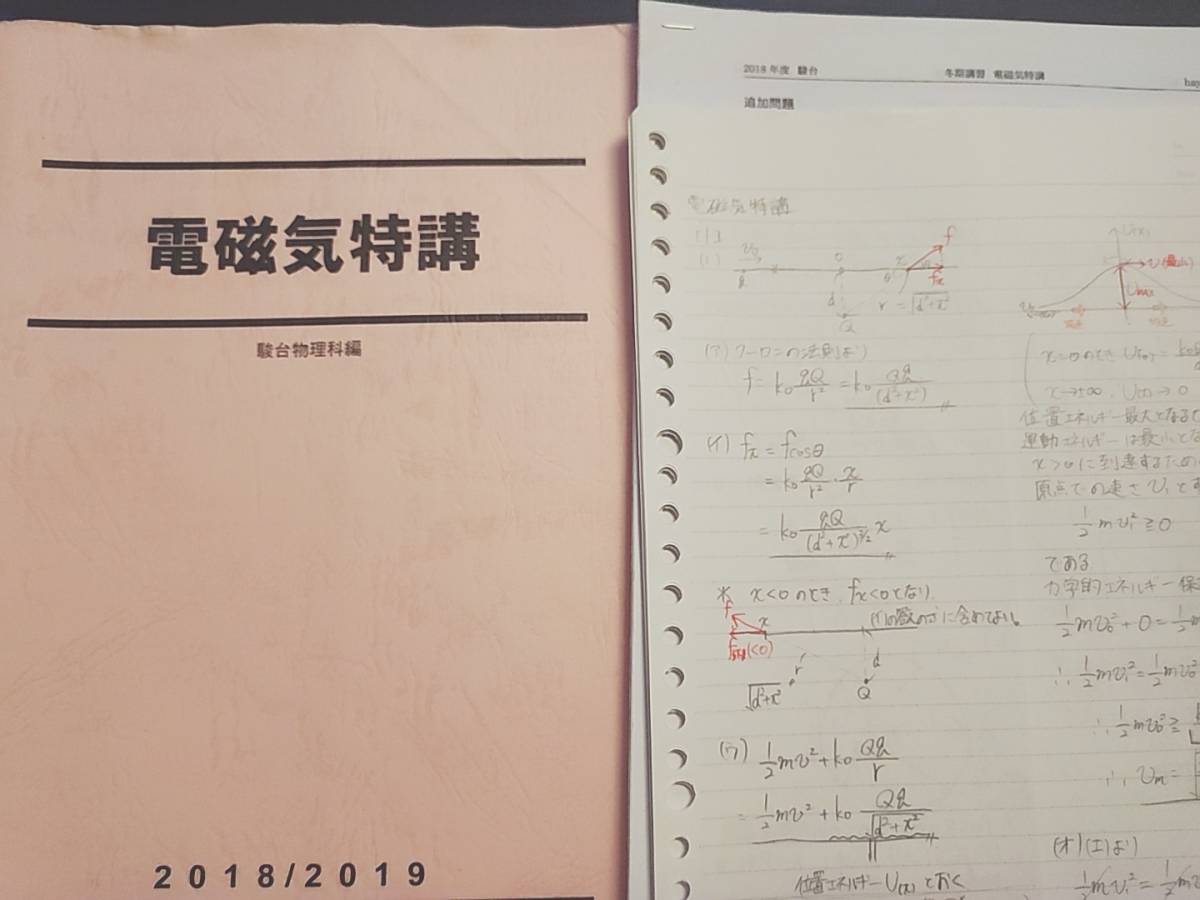 電磁気特講
駿台物理科編
2018/2019
2018年度 駿台 冬期講習 電磁気特講
追加問題
電磁気特講
[1]
(1)
v₀
q
0
d
Q
x
f
fx
r = √(d²+x²)
(ア) クーロンの法則より
f = k₀ qQ/r² = k₀ Qq/(d²+x²)
(イ) fx = fcosθ
= k₀ qQ/r² · x/r
= k₀ qQ/(d²+x²)^(3/2) x
* x<0 のとき, fx<0 となり,
f
x
fx(<0)
r
d
√(d²+x²)
Q
(ウ) 1/2 mv² + k₀ Qq/r
= 1/2 mv² + k₀ Qq/√(d²+x²)
位置エネルギー U(x) とおく
U(x)
v (最小)
Umax
x=0 のとき U(0) =
x→±∞, U(x) → 0
位置エネルギー最大となる
運動エネルギーは最小とな
x>0 に到達するため
原点での速さ v₁ とす
1/2 mv₁² ≧ 0
である
力学的エネルギー保
1/2 mv₀² + 0 = 1/2 m
∴ 1/2 mv₁² = 1/2 mv₀²
∴ 1/2 mv₀² ≧
∴ vm =
(オ) (エ)より
1/2 mv₁² = 1/2 m